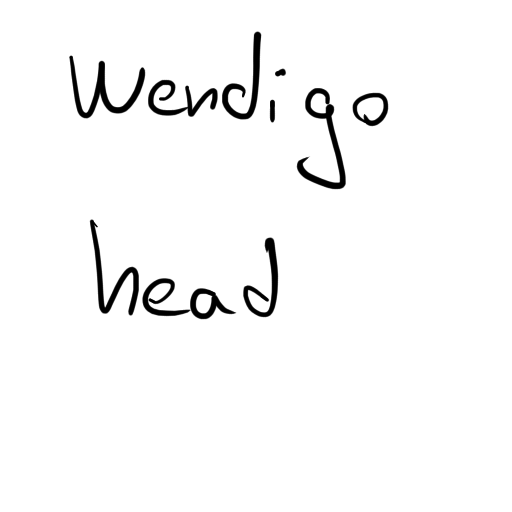 Wendigo
head